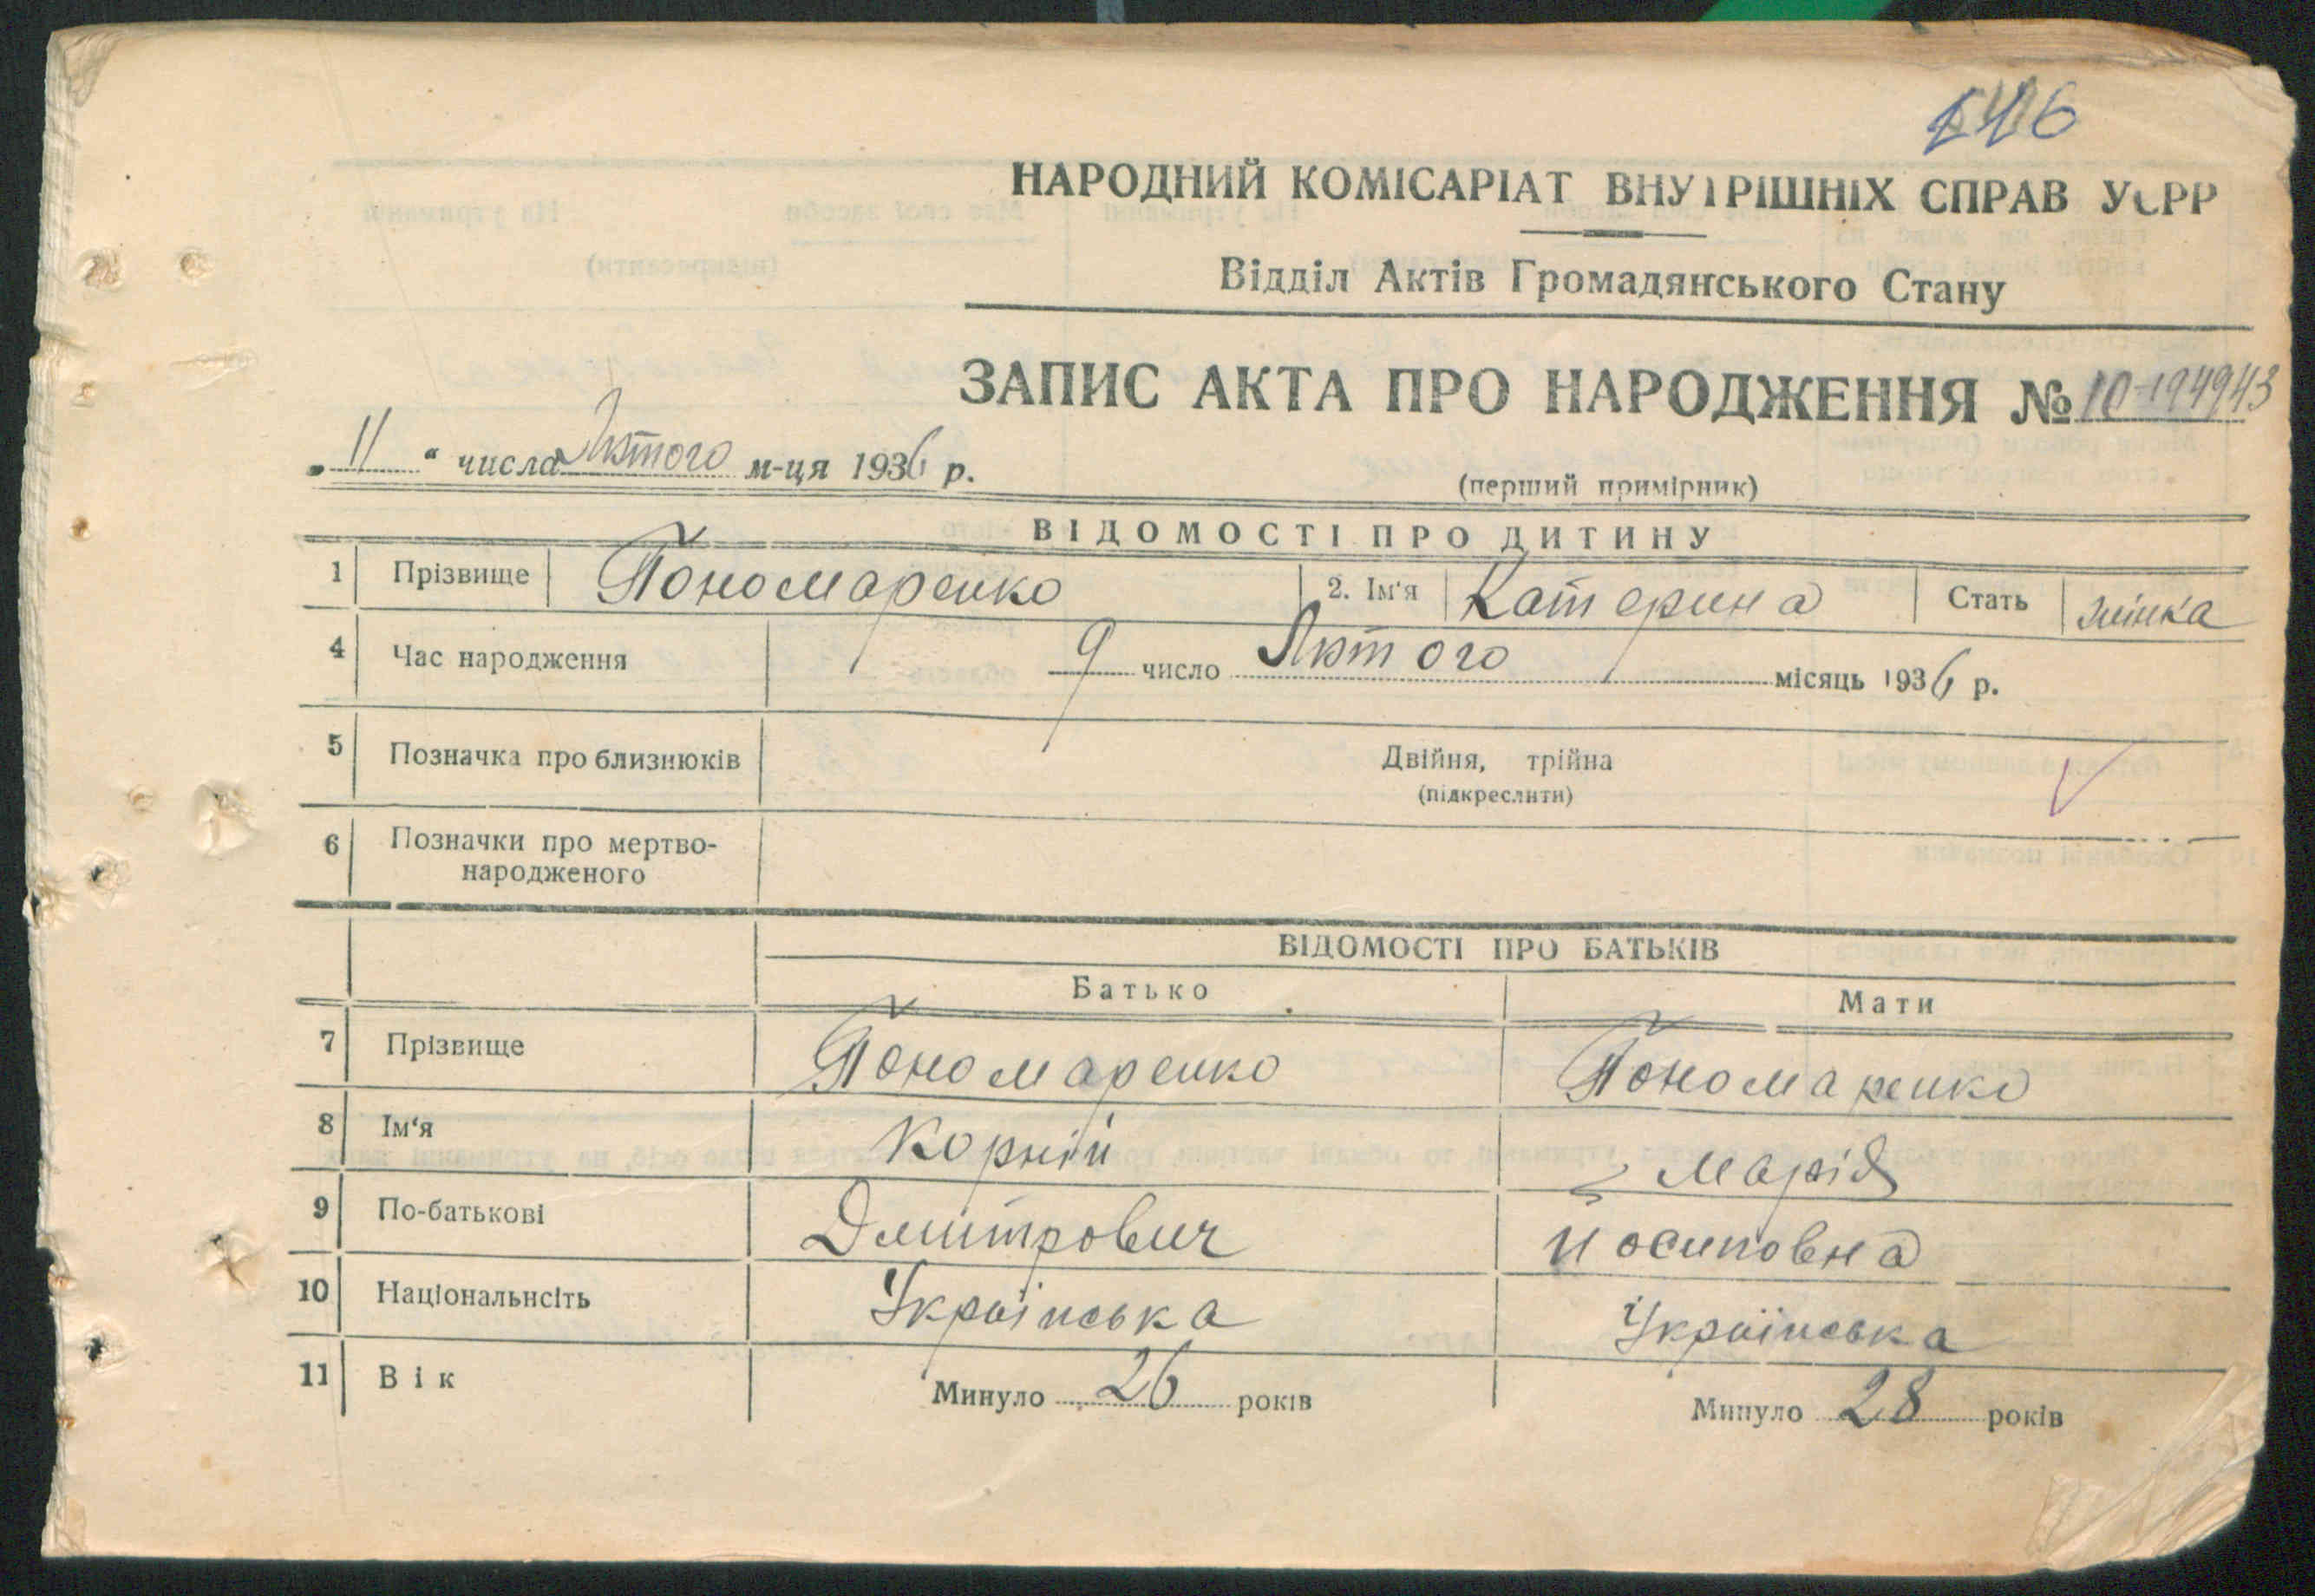 НАРОДНИЙ КОМІСАРІАТ ВНУТРІШНІХ СПРАВ УСРР
Відділ Актів Громадянського Стану
ЗАПИС АКТА ПРО НАРОДЖЕННЯ № 10-194943
„11“ числа Лютого м-ця 1936 р.
(перший примірник)
ВІДОМОСТІ ПРО ДИТИНУ
1 Прізвище Пономаренко 2. Ім'я Катерина Стать жінка
4 Час народження 9 число Лютого місяць 1936 р.
5 Позначка про близнюків Двійня, трійна
(підкреслити)
6 Позначки про мертво-
народженого
ВІДОМОСТІ ПРО БАТЬКІВ
Батько Мати
7 Прізвище Пономаренко Пономаренко
8 Ім'я Корній Марія
9 По-батькові Дмитрович Йосиповна
10 Національнсіть Українська Українська
11 Вік Минуло 26 років Минуло 28 років